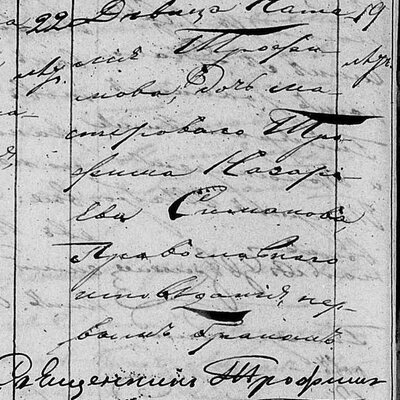 22 Девица Ната- 19
лія Трофи
мова, дочь ма-
стероваго Тро
фима Назарі
ева Симакова,
Православнаго
исповѣданія, пер
вымъ бракомъ
Священникъ Трофим